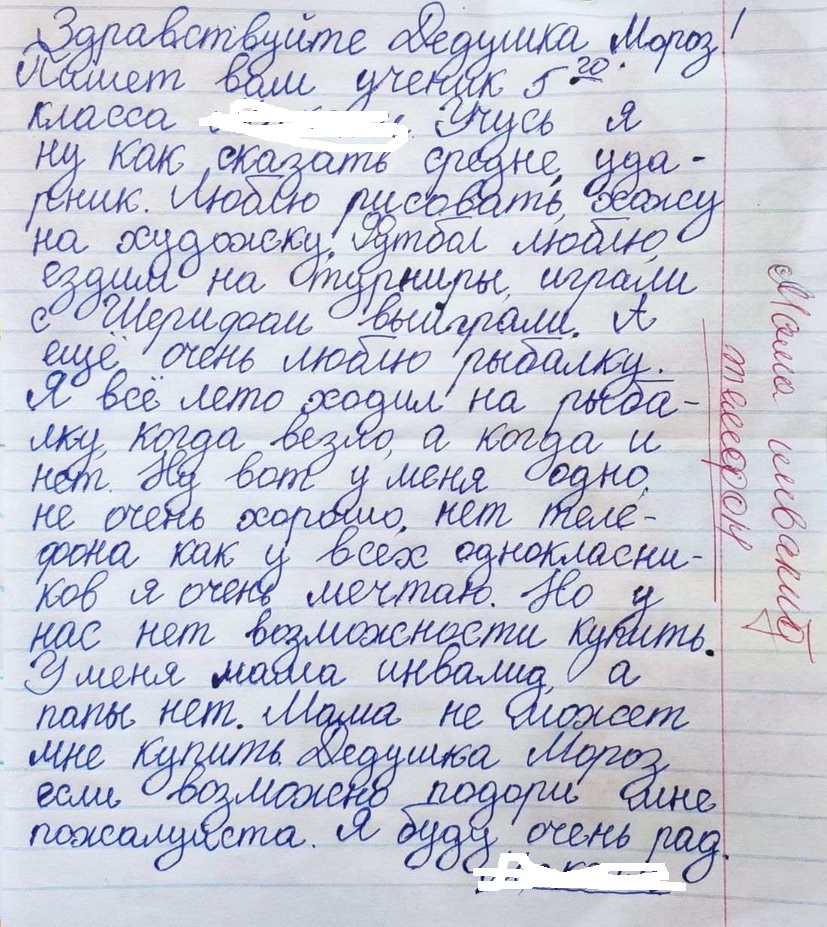 Здравствуйте Дедушка Мороз!
Пишет вам ученик 5го.
класса Учусь я
ну как сказать средне, уда-
рник. Люблю рисовать, хожу
на художку, Футбол люблю,
ездили на турниры, играли
с Шерифом выиграли. А
ещё очень люблю рыбалку.
Я всё лето ходил на рыба-
лку, когда везло, а когда и
нет. Ну вот у меня одно,
не очень хорошо, нет теле-
фона как у всех однокласни-
ков я очень мечтаю. Но у
нас нет возможности купить.
У меня мама инвалид, а
папы нет. Мама не может
мне купить. Дедушка Мороз
если возможно подори мне
пожалуйста. Я буду очень рад.
Мама инвалид
телефон